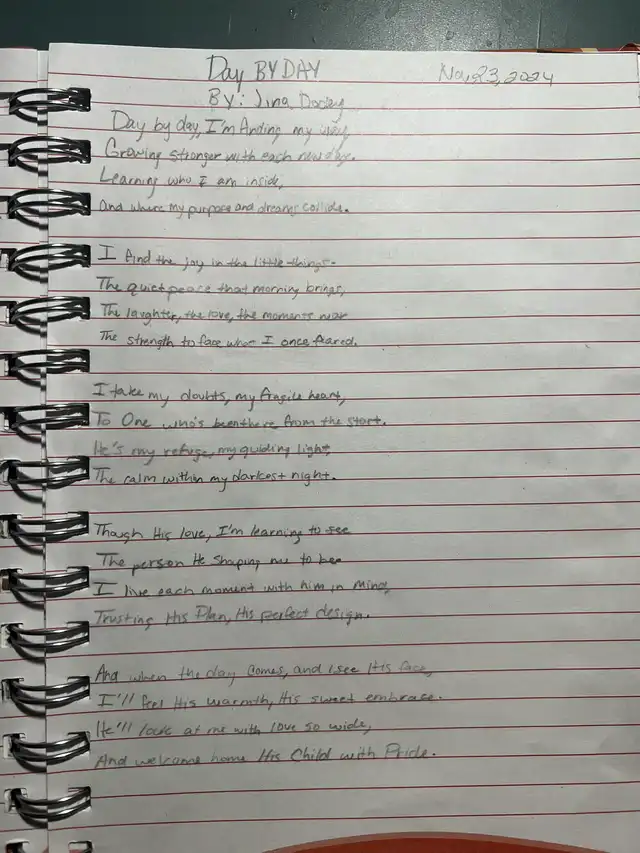 Day BY DAY
Nov 23, 2024
By: Jina
Day by day, I'm finding my way
Growing stronger with each new day.
Learning who I am inside,
And where my purpose and dreams collide.
I find the joy in the little things.
The quiet peace that morning brings,
The laughter, the love, the moments near
The strength to face what I once feared.
I take my doubts, my fragile heart,
To One who's been there from the start.
He's my refuge, my guiding light
The calm within my darkest night.
Though His love, I'm learning to see
The person He shaping me to be
I live each moment with him in mind,
Trusting His Plan, His perfect design.
And when the day comes, and I see His face,
I'll feel His warmth, His sweet embrase.
He'll look at me with love so wide,
And welcome home His Child with Pride.